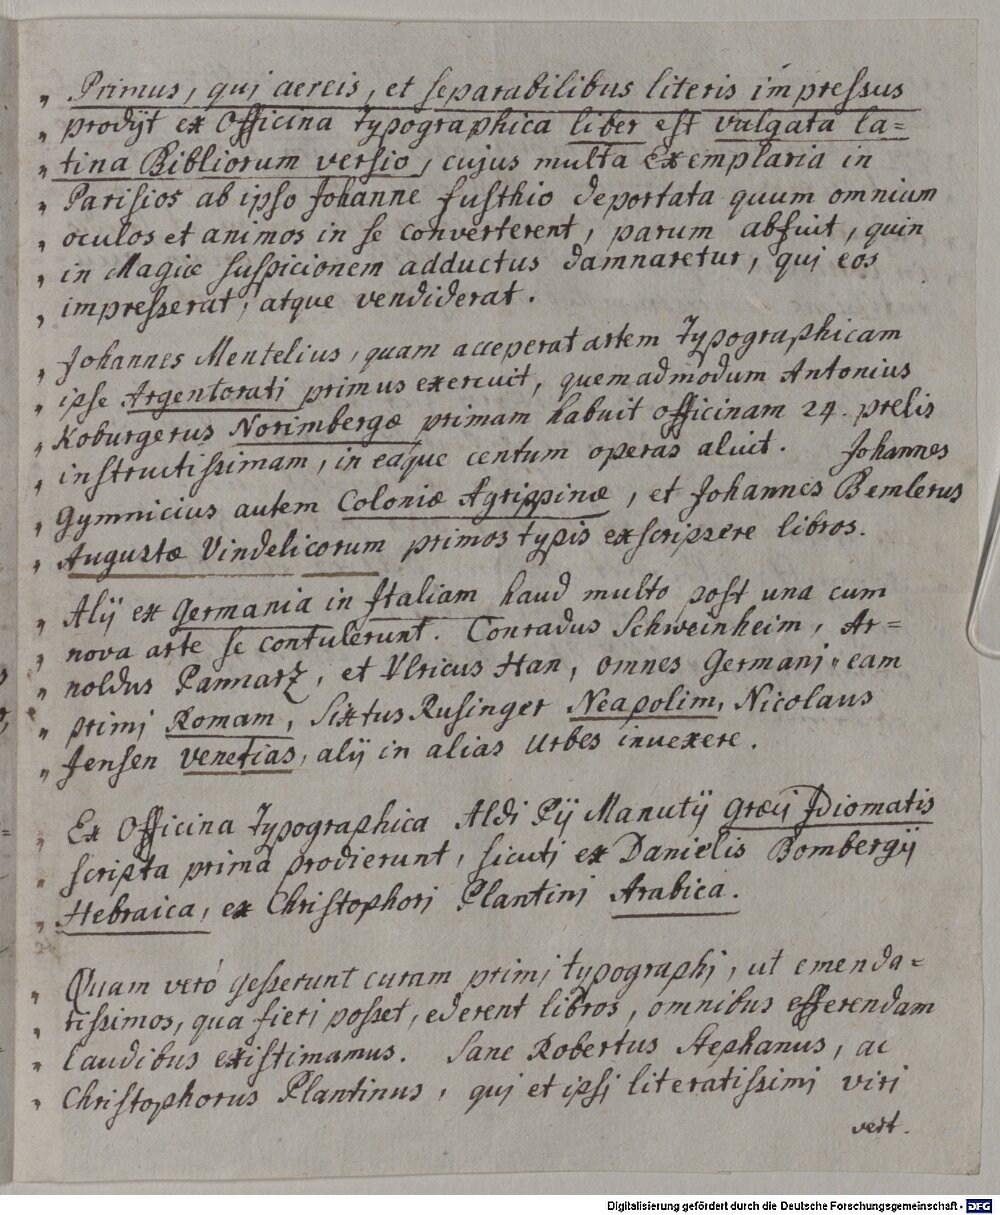 „ Primus, qui aereis, et separabilibus literis impressus
„ prodijt ex Officina Typographica liber est vulgata la=
„ tina Bibliorum versio, cujus multa Exemplaria in
„ Parisios ab ipso Johanne Fusthio deportata quum omnium
„ oculos et animos in se converterent, parum abfuit, quin
„ in Magiæ suspicionem adductus damnaretur, qui eos
„ impresserat, atque vendiderat.
„ Johannes Mentelius, quam acceperat artem Typographicam
„ ipse Argentorati primus exercuit, quemadmodum Antonius
„ Koburgerus Norimbergæ primam habuit officinam 24. prelis
„ instructissimam, in eaque centum operas aluit. Johannes
„ Gymnicius autem Coloniæ Agrippinæ, et Johannes Bemlerus
„ Augustæ Vindelicorum primos typis exscripsere libros.
„ Alij ex Germania in Italiam haud multo post una cum
„ nova arte se contulerunt. Conradus Schweinheim, Ar=
„ noldus Pannartz, et Ulricus Han, omnes Germani, eam
„ primi Romam, Sixtus Rusinger Neapolim, Nicolaus
„ Jensen Venetias, alij in alias Urbes invexere.
„ Ex Officina Typographica Aldi Pij Manutij Græci Idiomatis
„ scripta prima prodierunt, sicuti ex Danielis Bombergij
„ Hebraica, ex Christophori Plantini Arabica.
„ Quam veró gesserunt curam primi typographi, ut emenda=
„ tissimos, qua fieri posset, ederent libros, omnibus efferendam
„ laudibus existimamus. Sane Robertus Stephanus, ac
„ Christophorus Plantinus, qui et ipsi literatissimi viri
vert.
Digitalisierung gefördert durch die Deutsche Forschungsgemeinschaft - DFG